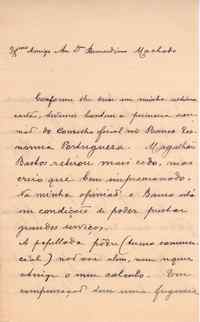 Amigo Sr. Dr. Bernardino Machado
Conforme lhe disse em minha
carta, tivemos hontem a primeira ses-
são do Conselho fiscal no Banco Eco-
nomia Portugueza. Magalhães
Bastos retirou mais cedo, mas
creio que bem impressionado.
Na minha opinião o Banco está
em condições de poder prestar
grandes serviços.
A papellada pôdre (termo commer-
cial) nos vae alem, nem sequer
attinge o meu calculo. Em
compensação tem uma freguesia